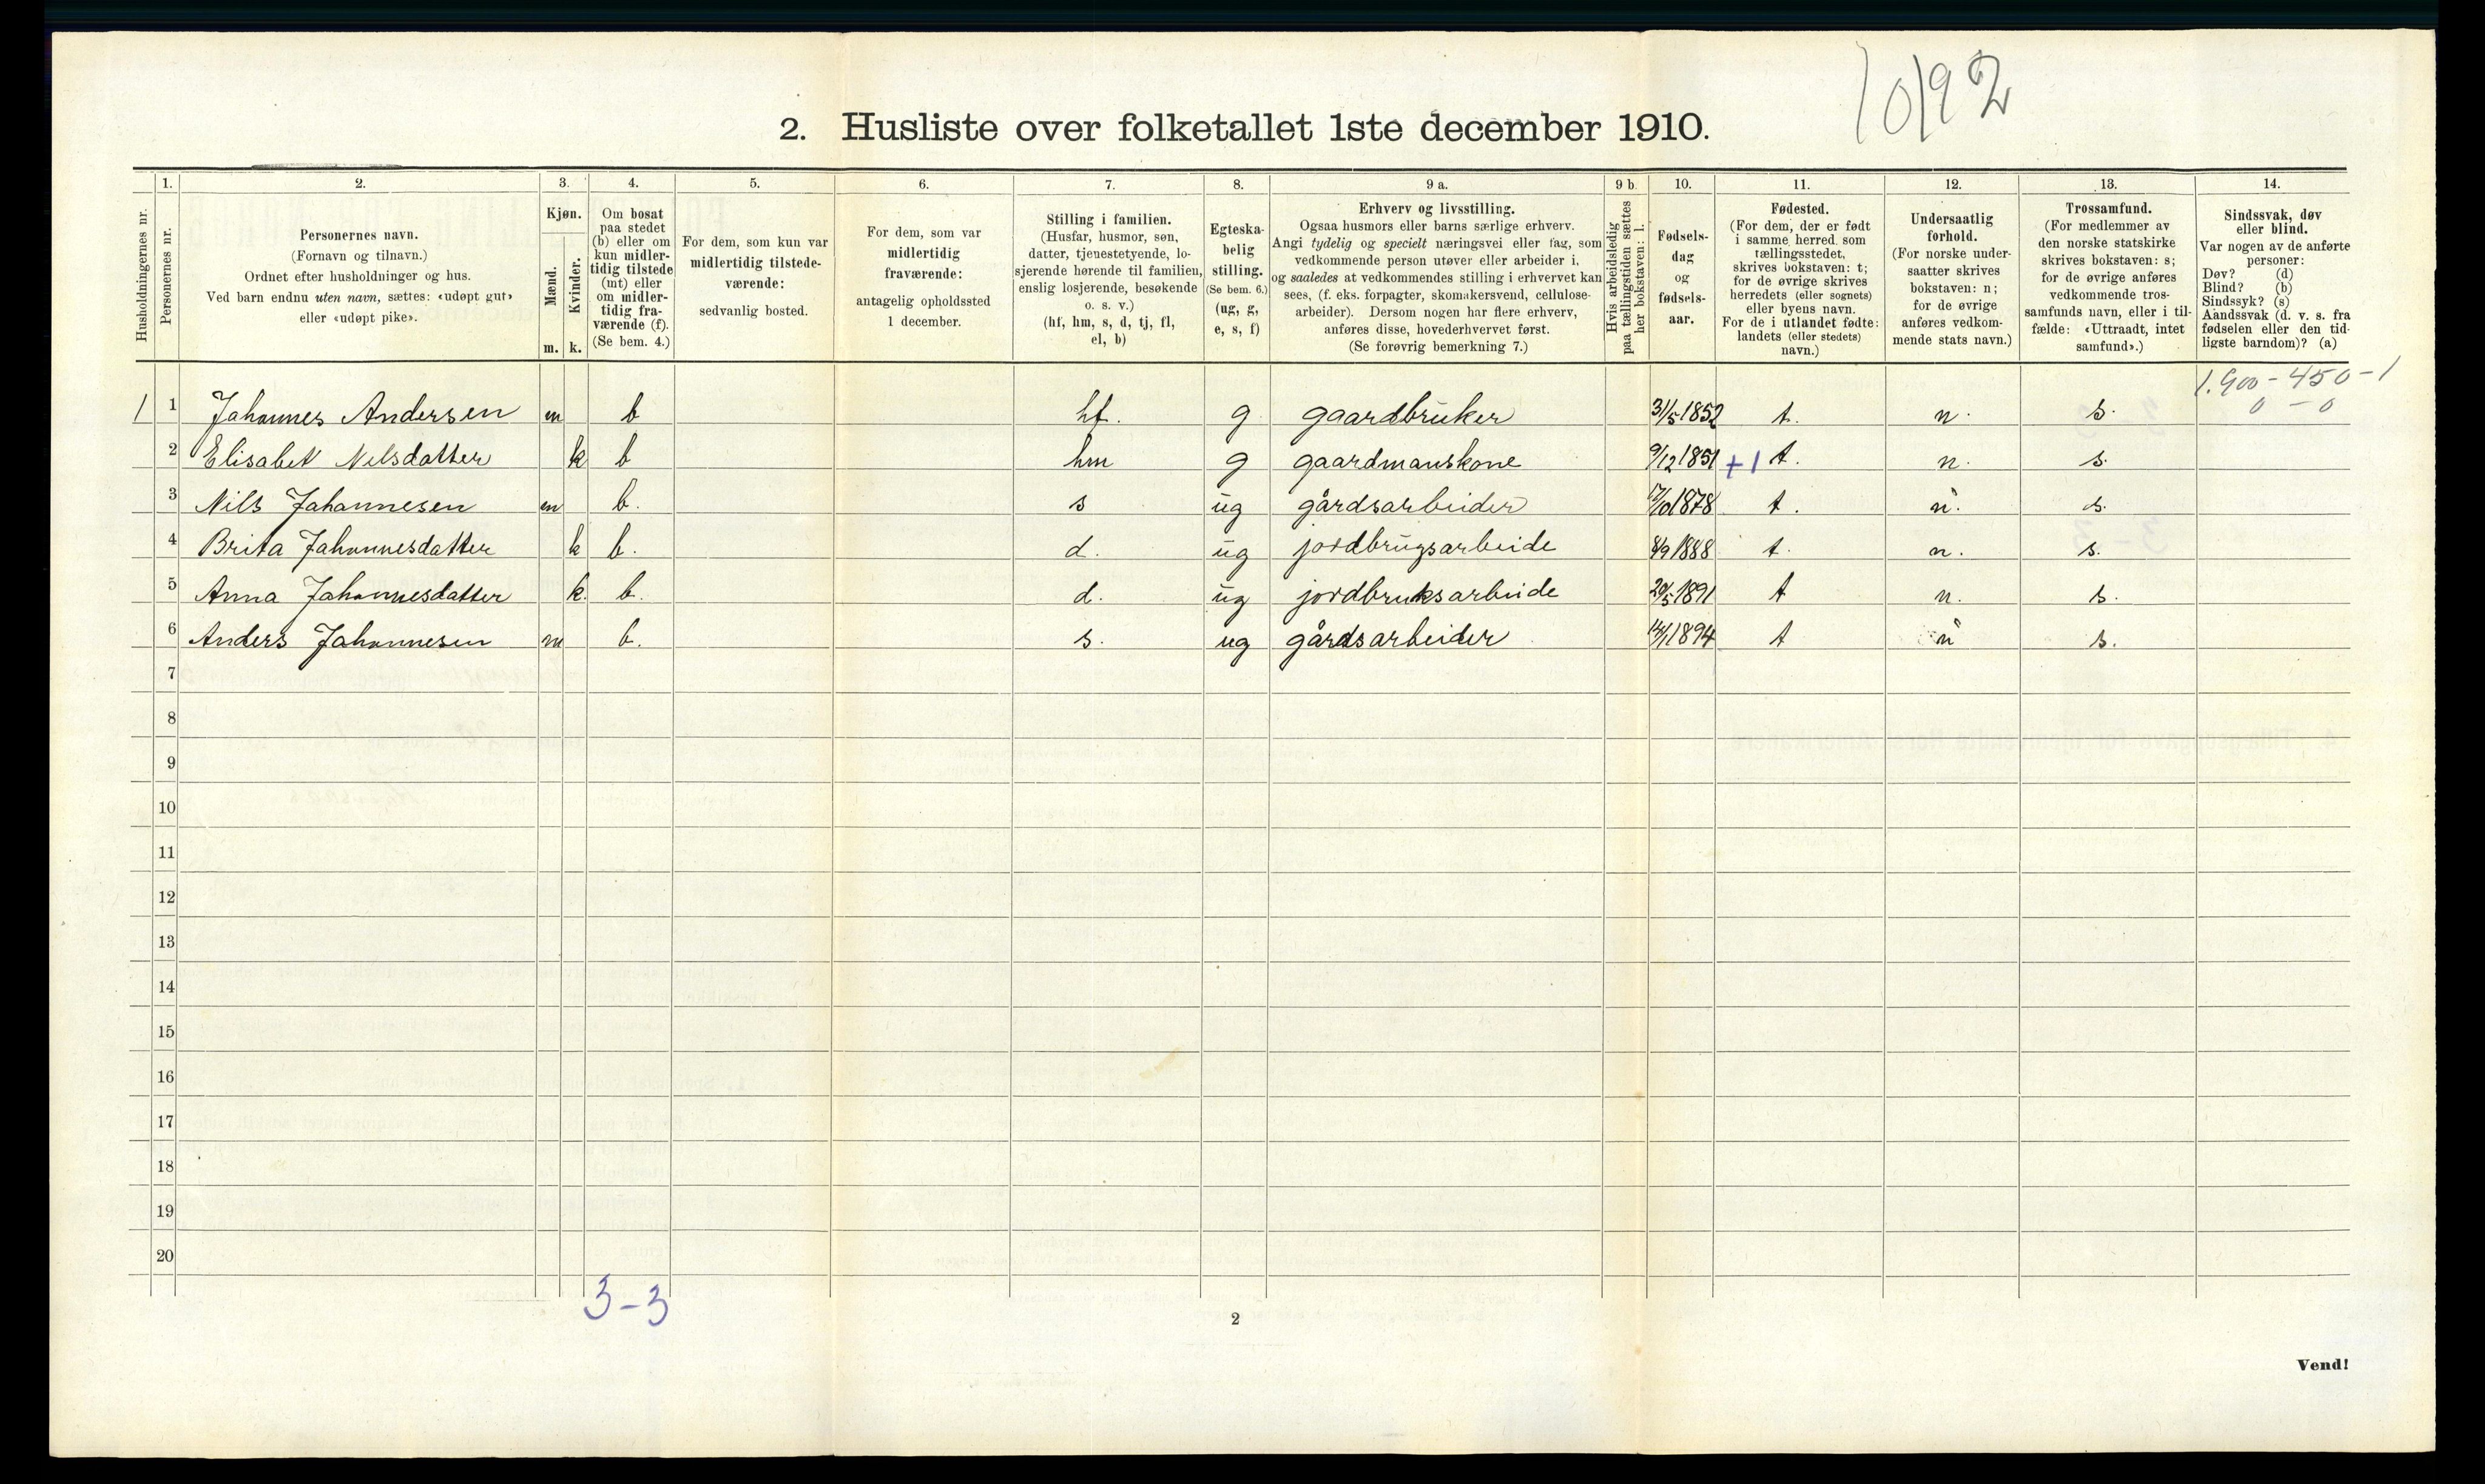 10192
2. Husliste over folketallet 1ste december 1910.
Husholdningernes nr.
1.
Personernes nr.
2.
Personernes navn.
(Fornavn og tilnavn.)
Ordnet efter husholdninger og hus.
Ved barn endnu uten navn, sættes: «udøpt gut»
eller «udøpt pike».
3.
Kjøn.
Mænd.
Kvinder.
m. k.
4.
Om bosat
paa stedet
(b) eller om
kun midler-
tidig tilstede
(mt) eller
om midler-
tidig fra-
værende (f).
(Se bem. 4.)
5.
For dem, som kun var
midlertidig tilstede-
værende:
sedvanlig bosted.
6.
For dem, som var
midlertidig
fraværende:
antagelig opholdssted
1 december.
7.
Stilling i familien.
(Husfar, husmor, søn,
datter, tjenestetyende, lo-
sjerende hørende til familien,
enslig losjerende, besøkende
o. s. v.)
(hf, hm, s, d, tj, fl,
el, b)
8.
Egteska-
belig
stilling.
(Se bem. 6.)
(ug, g,
e, s, f)
9 a.
Erhverv og livsstilling.
Ogsaa husmors eller barns særlige erhverv.
Angi tydelig og specielt næringsvei eller fag, som
vedkommende person utøver eller arbeider i,
og saaledes at vedkommendes stilling i erhvervet kan
sees, (f. eks. forpagter, skomakersvend, cellulose-
arbeider). Dersom nogen har flere erhverv,
anføres disse, hovederhvervet først.
(Se forøvrig bemerkning 7.)
9 b.
Hvis arbeidsledig
paa tællingstiden sættes
her bokstaven: l.
10.
Fødsels-
dag
og
fødsels-
aar.
11.
Fødested.
(For dem, der er født
i samme herred som
tællingsstedet,
skrives bokstaven: t;
for de øvrige skrives
herredets (eller sognets)
eller byens navn.
For de i utlandet fødte:
landets (eller stedets)
navn.)
12.
Undersaatlig
forhold.
(For norske under-
saatter skrives
bokstaven: n;
for de øvrige
anføres vedkom-
mende stats navn.)
13.
Trossamfund.
(For medlemmer av
den norske statskirke
skrives bokstaven: s;
for de øvrige anføres
vedkommende tros-
samfunds navn, eller i til-
fælde: «Uttraadt, intet
samfund».)
14.
Sindssvak, døv
eller blind.
Var nogen av de anførte
personer:
Døv? (d)
Blind? (b)
Sindssyk? (s)
Aandssvak (d. v. s. fra
fødselen eller den tid-
ligste barndom)? (a)
1.900-450-1
0-0
1 1 Johannes Andersen m b hf. g gaardbruker 31/5 1852 t. n. s.
2 Elisabet Nilsdatter k b hm g gaardmanskone 9/12 1851 +1 t. n. s.
3 Nils Johannesen m b. s ug gårdsarbeider 1878 t. n. s.
4 Brita Johannesdatter k b. d. ug jordbrugsarbeide 8/9 1888 t. n. s.
5 Anna Johannesdatter k. b. d. ug jordbruksarbeide 20/5 1891 t n. s.
6 Anders Johannesen m b. s. ug gårdsarbeider 14/1 1894 t n s.
7
8
9
10
11
12
13
14
15
16
17
18
19
20
3-3
2
Vend!